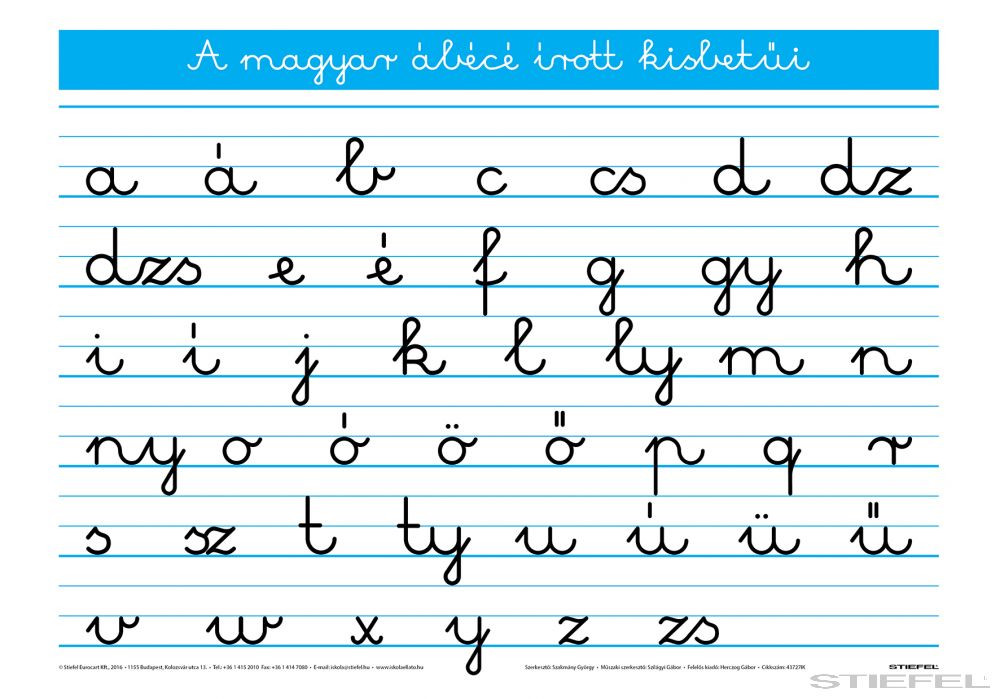 A magyar ábécé írott kisbetűi
a á b c cs d dz
dzs e é f g gy h
i í j k l ly m n
ny o ó ö ő p q r
s sz t ty u ú ü ű
v w x y z zs
© Stiefel Eurocart Kft., 2016 • 1155 Budapest, Kolozsvár utca 13. • Tel.: +36 1 415 2010 Fax: +36 1 414 7080 • E-mail: iskola@stiefel.hu • www.iskolaellato.hu Szerkesztő: Szakmány György • Műszaki szerkesztő: Szilágyi Gábor • Felelős kiadó: Herczog Gábor • Cikkszám: 43727IK STIEFEL
STIEFEL